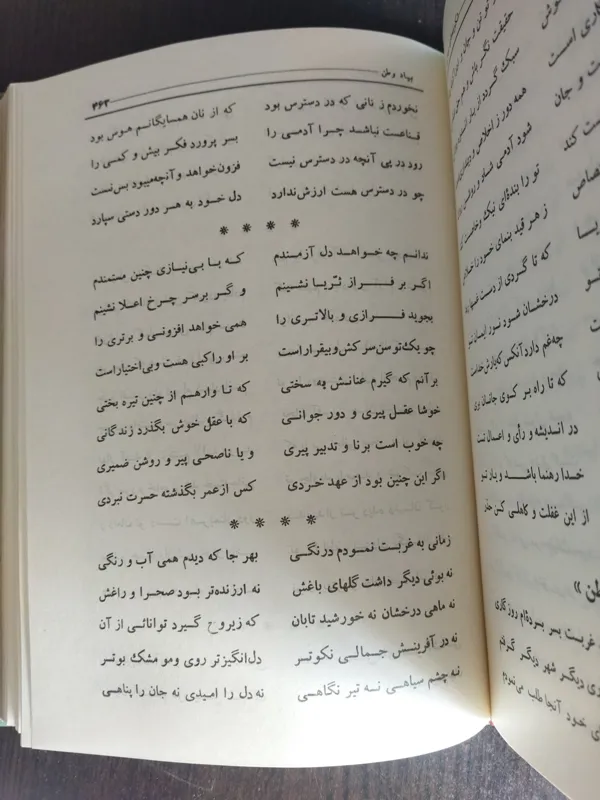 بیاد وطن ۳۶۳
نخوردم ز نانی که در دسترس بود که از نان همسایگانم هوس بود
قناعت نباشد چرا آدمی را بسر پرورد فکر بیش و کمی را
رود در پی آنچه در دسترس نیست فزون‌خواهد و آنچه‌میبود بس‌نیست
چو در دسترس هست ارزش‌ندارد دل خود به هر دور دستی سپارد
* * * *
ندانم چه خواهد دل آزمندم که با بی‌نیازی چنین مستمندم
اگر بر فراز ثریا نشینم و گر برسر چرخ اعلا نشینم
بجوید فرازی و بالاتری را همی خواهد افزونی و برتری را
چو یک‌توسن‌سرکش‌وبیقراراست بر او راکبی هست وبی‌اختیاراست
برآنم که گیرم عنانش به سختی که تا وارهم از چنین تیره بختی
خوشا عقل پیری و دور جوانی که با عقل خوش بگذرد زندگانی
چه خوب است برنا و تدبیر پیری و یا ناصحی پیر و روشن ضمیری
اگر این چنین بود از عهد خردی کس ازعمر بگذشته حسرت نبردی
* * * *
زمانی به غربت نمودم درنگی بهر جا که دیدم همی آب و رنگی
نه بوئی دیگر داشت گلهای باغش نه ارزنده‌تر بود صحرا و راغش
نه ماهی درخشان نه خورشید تابان که زیروح گیرد توانائی از آن
نه در آفرینش جمالی نکوتر دل‌انگیزتر روی ومو مشک بوتر
نه چشم سیاهی نه تیر نگاهی نه دل را امیدی نه جان را پناهی
حقیقت نگر باش و
سبک گردد از بار
همه دور ز اخلاص و
شود آدمی شاد و
تو را بنده‌ای نیک و
ز هر قید بنمای خود را
که تا گردی از دست
درخشان شود نور ایمان
چه‌غم دارد آنکس که‌یارش‌خداست
که تا راه بر کوی جانان بری
در اندیشه و رأی و اعمال تست
خدا رهنما باشد و یار تو
از این غفلت و کاهلی کن حذر
غربت بسر برده‌ام روزگاری
دیگر شهر دیگر گرفتم
خود آنجا طلب می نمودم